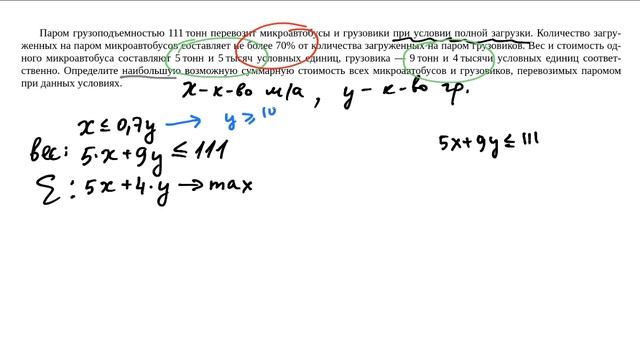 Паром грузоподъемностью 111 тонн перевозит микроавтобусы и грузовики при условии полной загрузки. Количество загру-
женных на паром микроавтобусов составляет не более 70% от количества загруженных на паром грузовиков. Вес и стоимость од-
ного микроавтобуса составляют 5 тонн и 5 тысяч условных единиц, грузовика — 9 тонн и 4 тысячи условных единиц соответ-
ственно. Определите наибольшую возможную суммарную стоимость всех микроавтобусов и грузовиков, перевозимых паромом
при данных условиях.
x – к-во м/а , y – к-во гр.
x ≤ 0,7y → y ≥ 10
вес: 5·x + 9y ≤ 111
5x+9y ≤ 111
Σ: 5x + 4·y → max